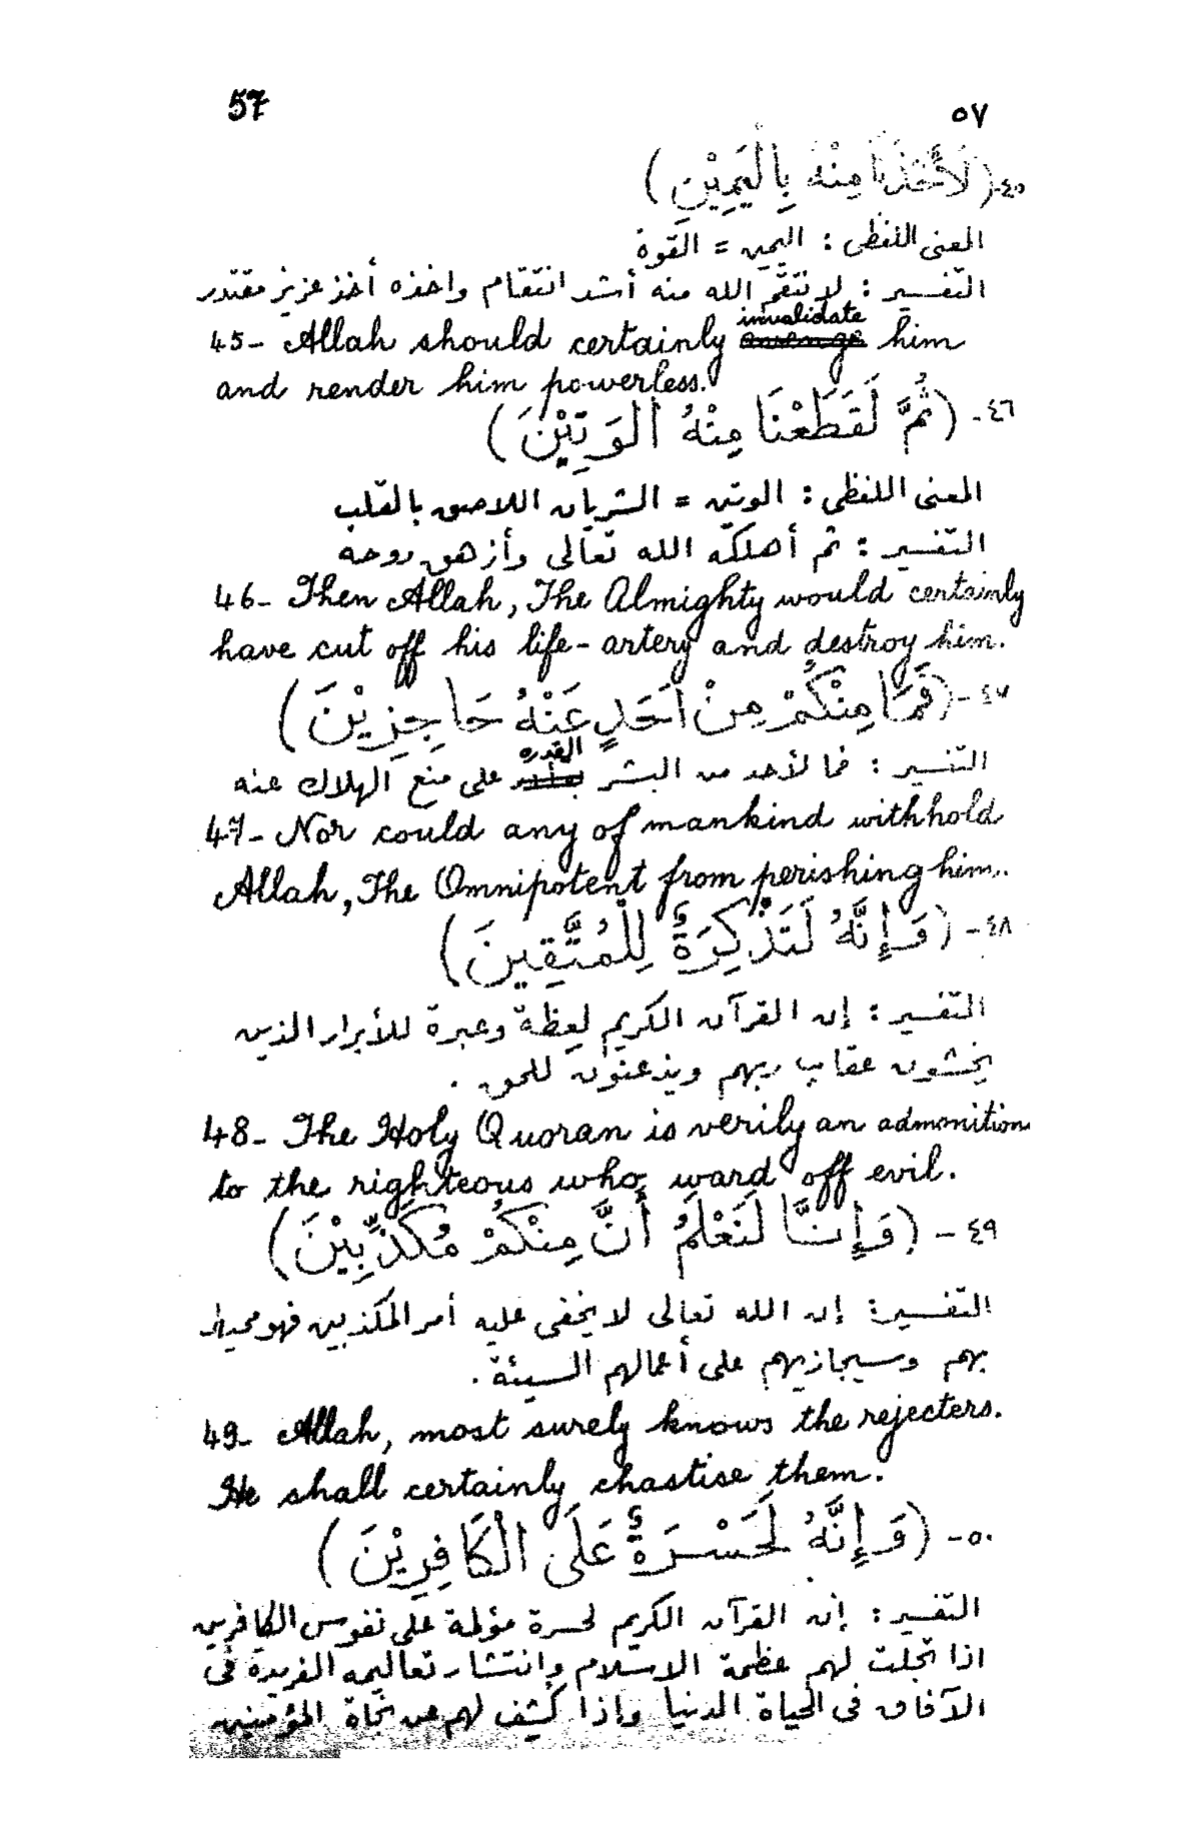 57 ٥٧
٤٥- (لَأَخَذْنَا مِنْهُ بِالْيَمِيْنِ)
المعنى اللفظى : اليمين = القوة
التفسير : لانتقم الله منه أشد انتقام واخذه أخذ عزيز مقتدر
invalidate
45- Allah should certainly avenge him
and render him powerless.
٤٦- (ثُمَّ لَقَطَعْنَا مِنْهُ الْوَتِيْنَ)
المعنى اللفظى : الوتين = الشريان اللاصق بالقلب
التفسير : ثم أهلكه الله تعالى وأزهق روحه
46- Then Allah, The Almighty would certainly
have cut off his life-artery and destroy him.
٤٧- (فَمَا مِنْكُمْ مِنْ أَحَدٍ عَنْهُ حَاجِزِيْنَ)
القدره
التفسير : فما لأحد من البشر على منع الهلاك عنه
47- Nor could any of mankind withhold
Allah, The Omnipotent from perishing him.
٤٨- (وَإِنَّهُ لَتَذْكِرَةٌ لِلْمُتَّقِينَ)
التفسير : إن القرآن الكريم لعظة وعبرة للأبرار الذين
يخشون عقاب ربهم ويذعنون للحق .
48- The Holy Quoran is verily an admonition
to the righteous who ward off evil.
٤٩- (وَإِنَّا لَنَعْلَمُ أَنَّ مِنْكُمْ مُكَذِّبِيْنَ)
التفسير : إن الله تعالى لا يخفى عليه أمر المكذبين فهو محيط
بهم وسيجازيهم على أعمالهم السيئة .
49- Allah, most surely knows the rejecters.
He shall certainly chastise them.
٥٠- (وَإِنَّهُ لَحَسْرَةٌ عَلَى الْكَافِرِيْنَ)
التفسير : إن القرآن الكريم لحسرة مؤلمة على نفوس الكافرين
اذا تجلت لهم عظمة الاسلام وانتشار تعاليمه الفريدة فى
الآفاق فى الحياة الدنيا وإذا كشف لهم عن نجاة المؤمنين